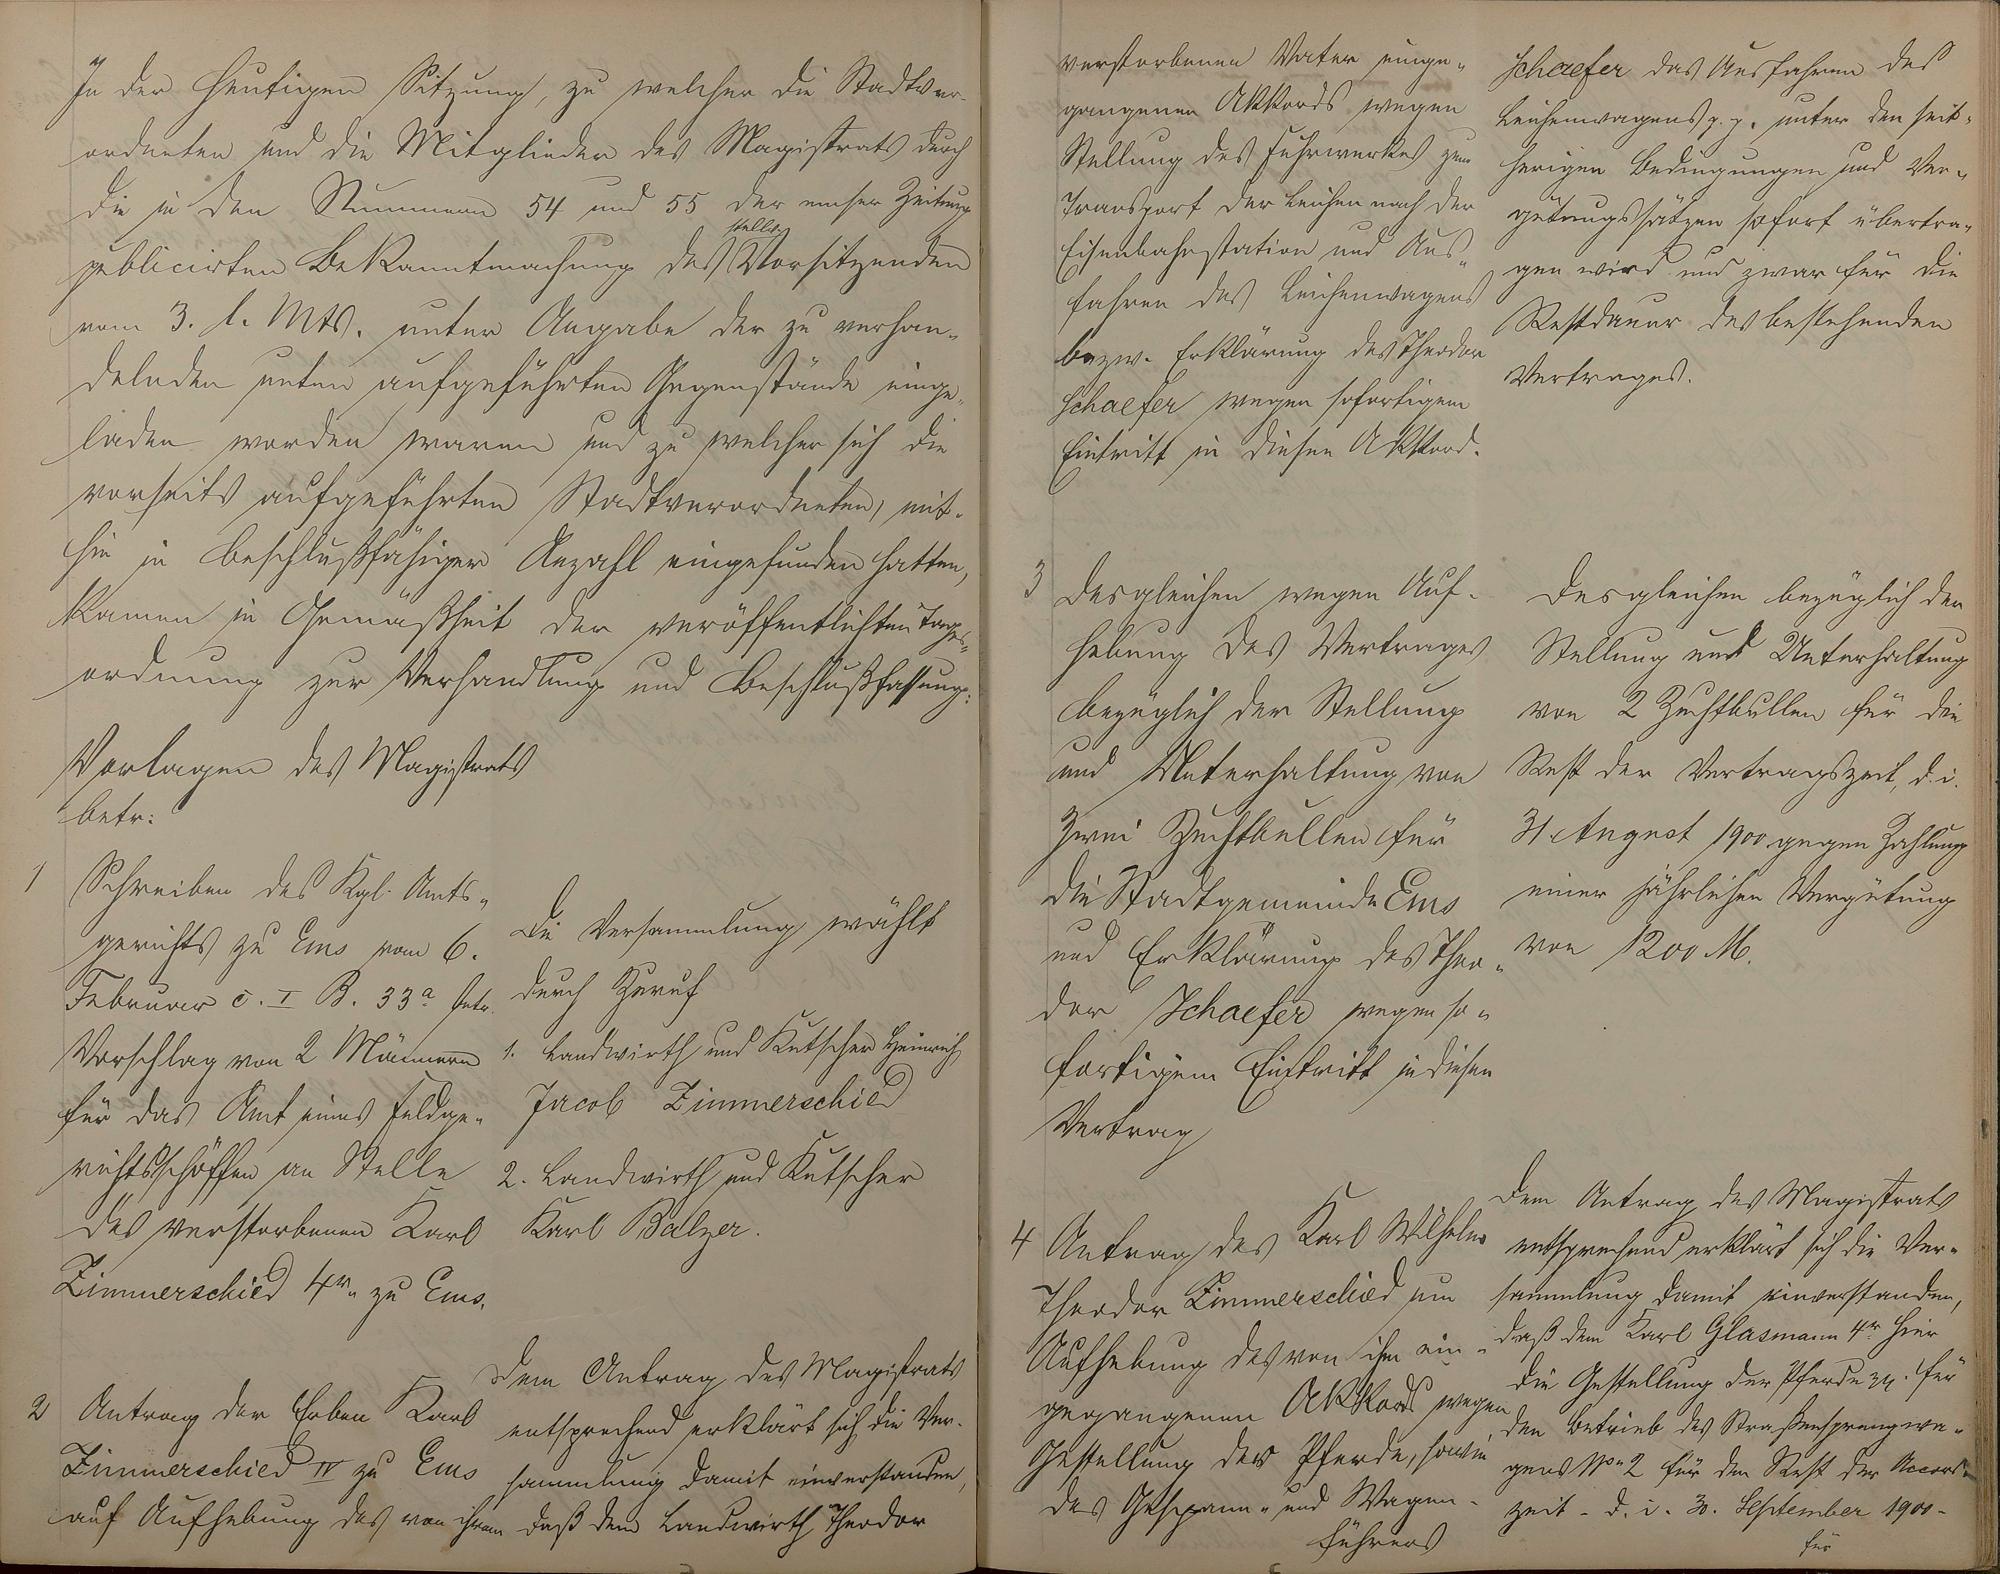 In der heutigen Sitzung, zu welcher die Stadtver-
ordneten und die Mitglieder des Magistrats durch
die in den Nummern 54 und 55 der emser Zeitung
publicirten Bekanntmachung des stellv. Vorsitzenden
vom 3. l. Mts. unter Angabe der zu verhan-
delnden unten aufgeführten Gegenstände einge-
laden worden waren und zu welcher sich die
vorseits aufgeführten Stadtverordneten, mit-
hin in beschlußfähiger Anzahl eingefunden hatten,
kamen in Gemäßheit der veröffentlichten Tages-
ordnung zur Verhandlung und Beschlußfassung:
Vorlagen des Magistrats
betr:
1 Schreiben des Kgl. Amts-
gerichts zu Ems vom 6.
Februar c. I B. 33a betr.
Vorschlag von 2 Männern
für das Amt eines Feldge-
richtsschöffen an Stelle
des verstorbenen Karl
Zimmerschied 4r. zu Ems.
Die Versammlung wählt
durch Zuruf
1. Landwirth und Kutscher Heinrich
Jacob Zimmerschied
2. Landwirth und Kutscher
Karl Balzer.
2 Antrag der Erben Karl
Zimmerschied IV zu Ems
auf Aufhebung des von ihrem
Dem Antrag des Magistrats
entsprechend erklärt sich die Ver-
sammlung damit einverstanden,
daß dem Landwirth Theodor
verstorbenen Vater einge-
gangenen Akkords wegen
Stellung des Fuhrwerkes zum
Transport der Leichen nach der
Eisenbahnstation und Aus-
fahren des Leichenwagens
bezw. Erklärung des Theodor
Schaefer wegen sofortigem
Eintritt in diesen Akkord.
Schaefer das Ausfahren des
Leichenwagens p. p. unter den seit-
herigen Bedingungen und Ver-
gütungssätzen sofort übertra-
gen wird und zwar für die
Restdauer des bestehenden
Vertrages.
3 Desgleichen wegen Auf-
hebung des Vertrages
bezüglich der Stellung
und Unterhaltung von
zwei Zuchtbullen für
die Stadtgemeinde Ems
und Erklärung des Theo-
dor Schaefer wegen so-
fortigem Eintritt in diesen
Vertrag
Desgleichen bezüglich der
Stellung und Unterhaltung
von 2 Zuchtbullen für die
Rest der Vertragszeit, d. i.
31. August 1900 gegen Zahlung
einer jährlichen Vergütung
von 1200 M.
4 Antrag des Karl Wilhelm
Theodor Zimmerschied um
Aufhebung des von ihm ein-
gegangenen Akkords wegen
Gestellung der Pferde, sowie
des Gespann- und Wagen-
führers
Dem Antrag des Magistrats
entsprechend erklärt sich die Ver-
sammlung damit einverstanden,
daß dem Karl Glasmann 4r. hier
die Gestellung der Pferde pp. für
den Betrieb des Straßensprengwa-
gens No. 2 für den Rest der Accord-
zeit - d. i. 30. September 1900 -
für